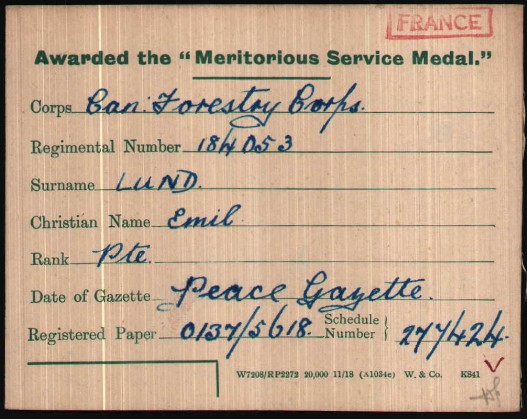 FRANCE
Awarded the "Meritorious Service Medal."
Corps Can: Forestry Corps.
Regimental Number 184053
Surname LUND.
Christian Name Emil
Rank Pte.
Date of Gazette Peace Gazette.
Registered Paper 0137/5618. Schedule Number } 277424.
W7208/RP2272 20,000 11/18 (A1034e) W. & Co. K841